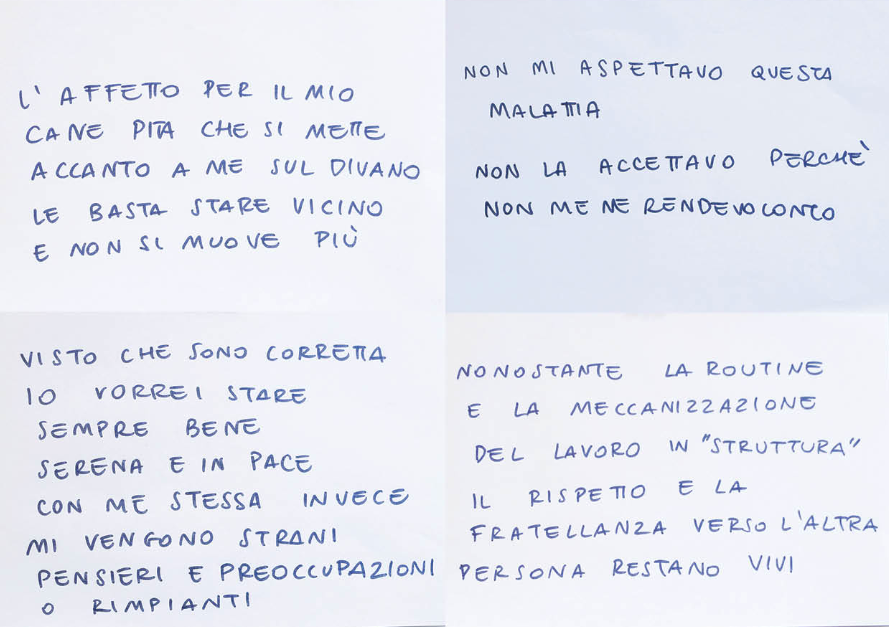 L'AFFETTO PER IL MIO
CANE PITA CHE SI METTE
ACCANTO A ME SUL DIVANO
LE BASTA STARE VICINO
E NON SI MUOVE PIÙ
NON MI ASPETTAVO QUESTA
MALATTIA
NON LA ACCETTAVO PERCHÈ
NON ME NE RENDEVO CONTO
VISTO CHE SONO CORRETTA
IO VORREI STARE
SEMPRE BENE
SERENA E IN PACE
CON ME STESSA INVECE
MI VENGONO STRANI
PENSIERI E PREOCCUPAZIONI
O RIMPIANTI
NONOSTANTE LA ROUTINE
E LA MECCANIZZAZIONE
DEL LAVORO IN "STRUTTURA"
IL RISPETTO E LA
FRATELLANZA VERSO L'ALTRA
PERSONA RESTANO VIVI